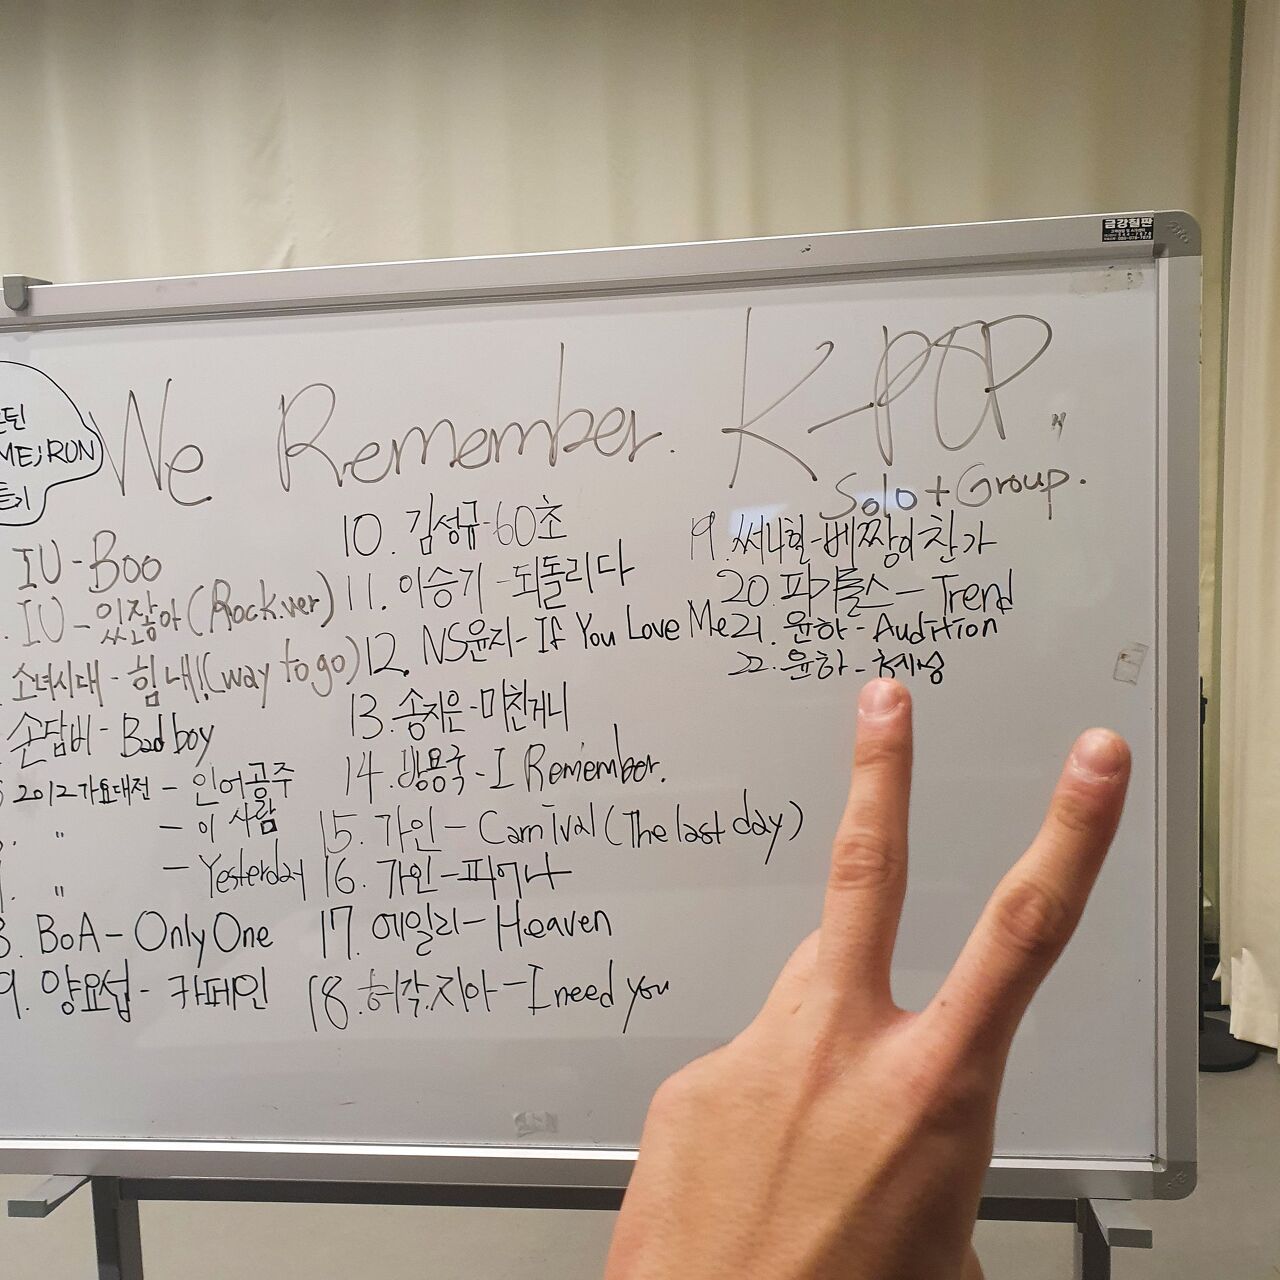 금강칠판
We Remember. K-POP.
Solo + Group.
ME;RON
듣기
IU - Boo
IU - 있잖아 (Rock.ver)
소녀시대 - 힘 내! (way to go)
손담비 - Bad boy
2012 가요대전 - 인어공주
" - 이 사람
" - Yesterday
8. BoA - Only One
9. 양요섭 - 카페인
10. 김성규 - 60초
11. 이승기 - 되돌리다
12. NS윤지 - If You Love Me
13. 송지은 - 미친거니
14. 방용국 - I Remember.
15. 가인 - Carnival (The last day)
16. 가인 - 피어나
17. 에일리 - Heaven
18. 허각.지아 - I need you
19. 써니힐 - 베짱이 찬가
20. 피기돌스 - Trend
21. 윤하 - Audition
22. 윤하 - 혜성